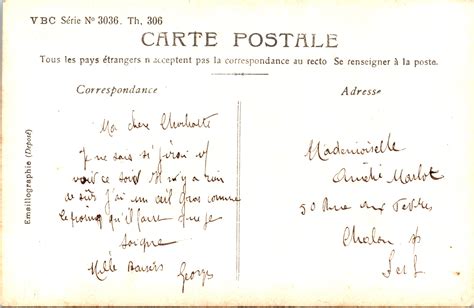 VBC Série Nº 3036. Th, 306
CARTE POSTALE
Tous les pays étrangers n acceptent pas la correspondance au recto Se renseigner à la poste.
Correspondance
Adresse
Emaillographie (Déposé)
Ma chere Charlotte
Je ne sais si j'irai
voir ce soir il n'y a rien
de sûr j'ai un œil gros comme
le poing qu'il faut que je
soigne
Mille Baisers
Georges
Mademoiselle
Marlot
50 Rue aux Fèvres
Chalon s/s
S et L